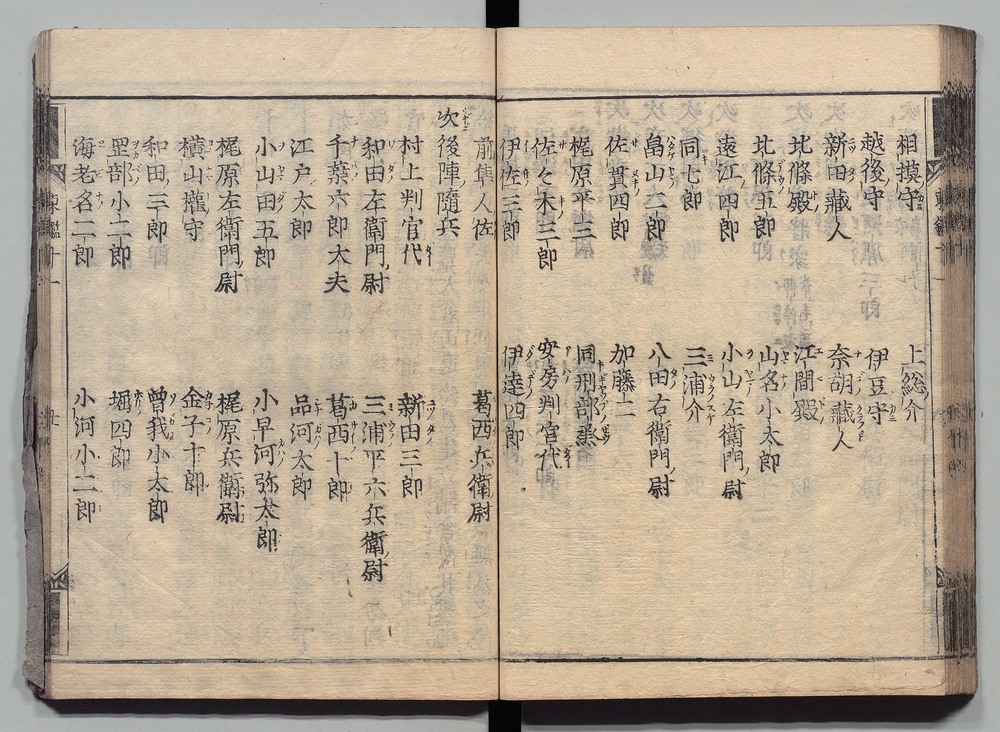 相摸守 上総介
越後守 伊豆守
新田藏人 奈胡藏人
北條殿 江間殿
北條五郎 山名小太郎
遠江四郎 小山左衛門尉
同七郎 三浦介
畠山二郎 八田右衛門尉
佐貫四郎 加藤二
梶原平三 同刑部丞
佐々木三郎 安房判官代
伊佐三郎 伊達四郎
前隼人佐 葛西兵衛尉
次後陣随兵
村上判官代 新田三郎
和田左衛門尉 三浦平六兵衛尉
千葉六郎大夫 葛西十郎
江戸太郎 品河太郎
小山田五郎 小早河弥太郎
梶原左衛門尉 梶原兵衛尉
横山權守 金子十郎
和田三郎 曾我小太郎
岡部小二郎 堀四郎
海老名二郎 小河小二郎
東鑑十一